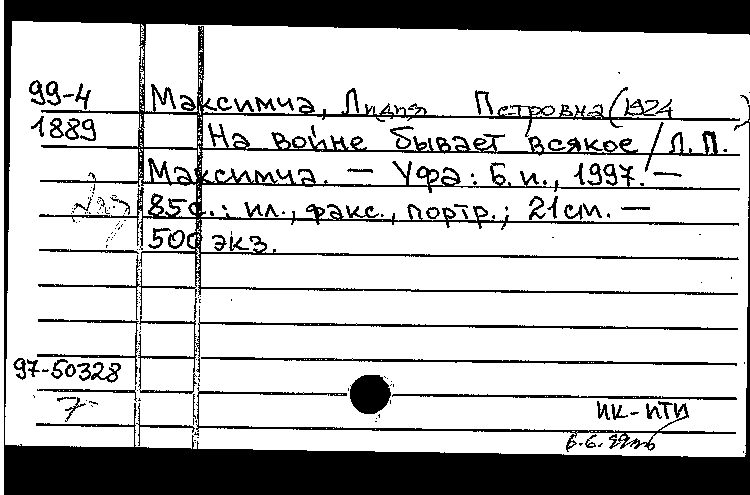 99-4 Максимча, Лидия Петровна (1924 )
1889 На войне бывает всякое / Л.П.
Максимча. — Уфа : Б.и., 1997. —
85с. : ил., факс., портр.; 21см. —
500 экз.
97-50328
7
ИК-ИТИ